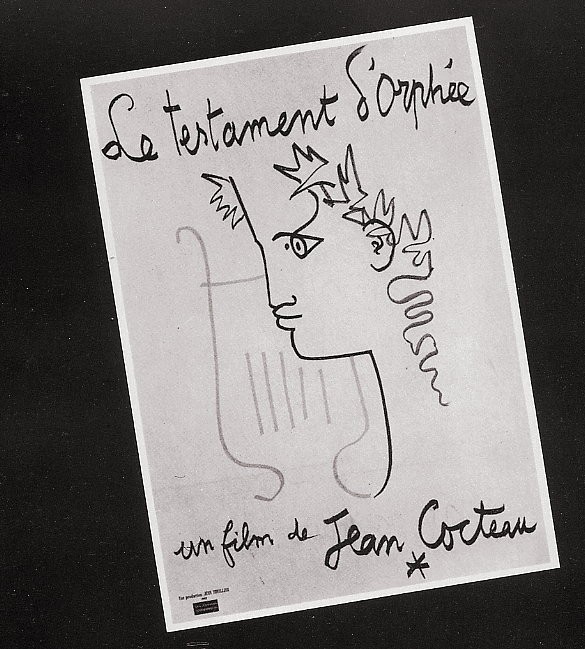 Le testament d'Orphée
un film de Jean Cocteau
Une production JEAN THUILLIER